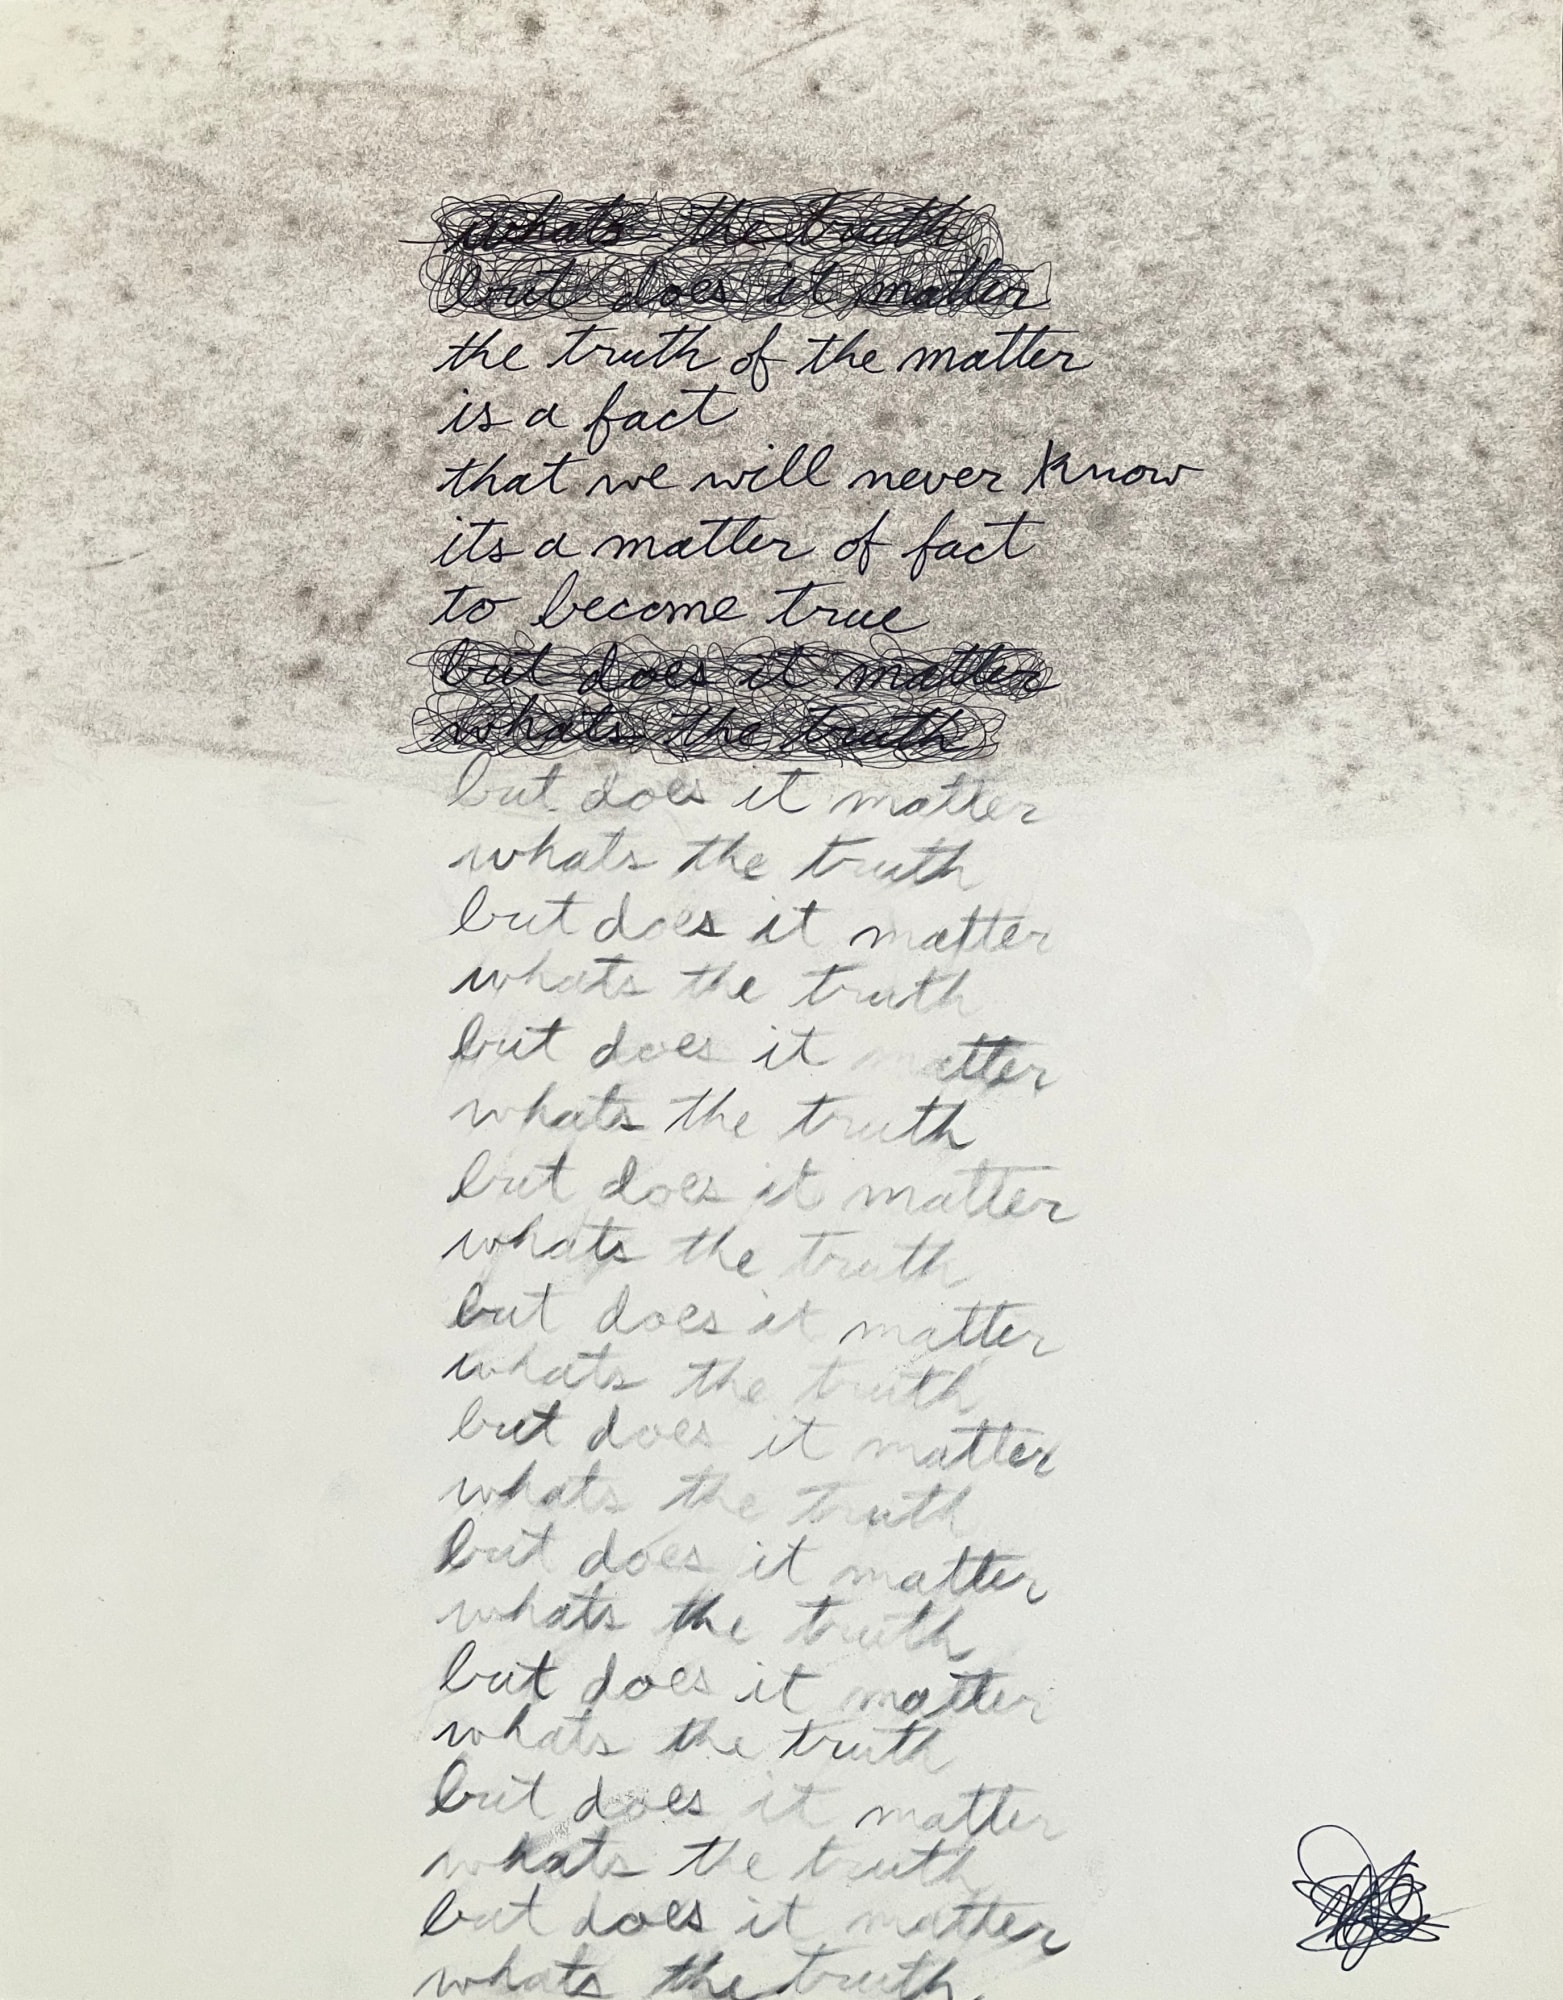 whats the truth
but does it matter
the truth of the matter
is a fact
that we will never know
its a matter of fact
to become true
but does it matter
whats the truth
but does it matter
whats the truth
but does it matter
whats the truth
but does it matter
whats the truth
but does it matter
whats the truth
but does it matter
whats the truth
but does it matter
whats the truth
but does it matter
whats the truth
but does it matter
whats the truth
but does it matter
whats the truth
but does it matter
whats the truth